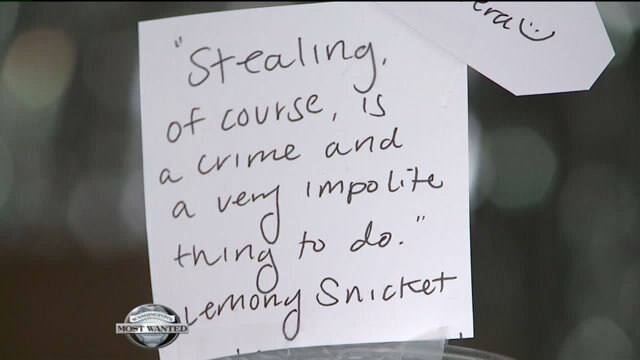 era☺
"Stealing,
of course, is
a crime and
a very impolite
thing to do."
Lemony Snicket
WASHINGTON'S
MOST WANTED